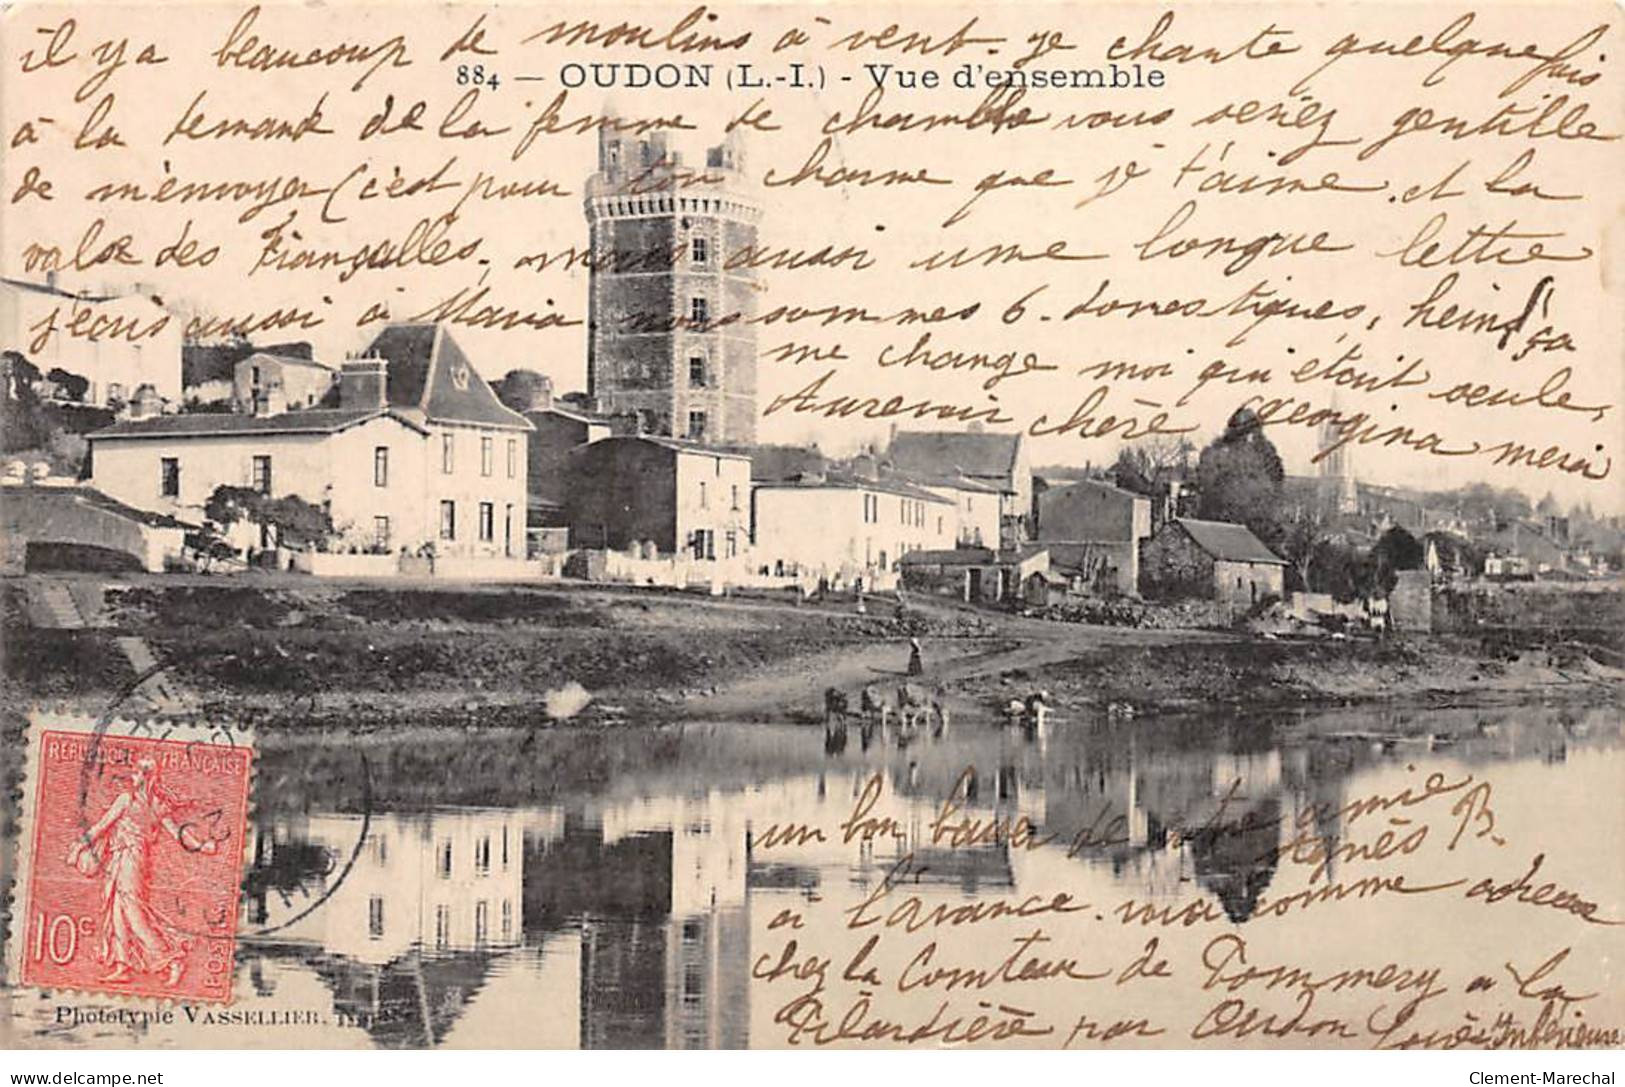 il y a beaucoup de moulins à vent. je chante quelquefois
884 — OUDON (L.-I.) - Vue d'ensemble
à la demande de la femme de chambre vous seriez gentille
de m'envoyer (c'est pour ton charme que je t'aime. et la
valse des Fiançailles. mais aussi une longue lettre
j'écris aussi à Maria nous sommes 6. domestiques, hein ça
me change moi qui étais seule,
Aurevoir chère Georgina merci
un bon baiser de votre amie
Agnès B.
à l'avance. voici comme adresse
chez la Comtesse de Pommery a la
Pilardière par Oudon Loire Inférieure
REPUBLIQUE FRANÇAISE
10c
POSTES
Phototypie VASSELLIER, Nantes
delcampe.net
Clement-Marechal